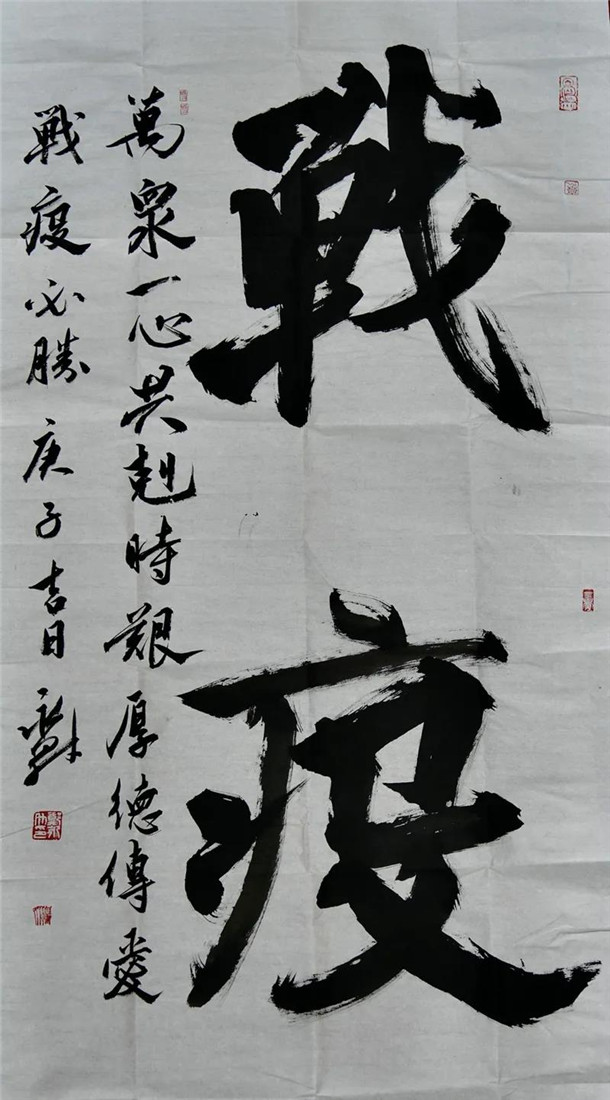 戰疫
萬衆一心共剋時艱厚德傳愛
戰疫必勝庚子吉日